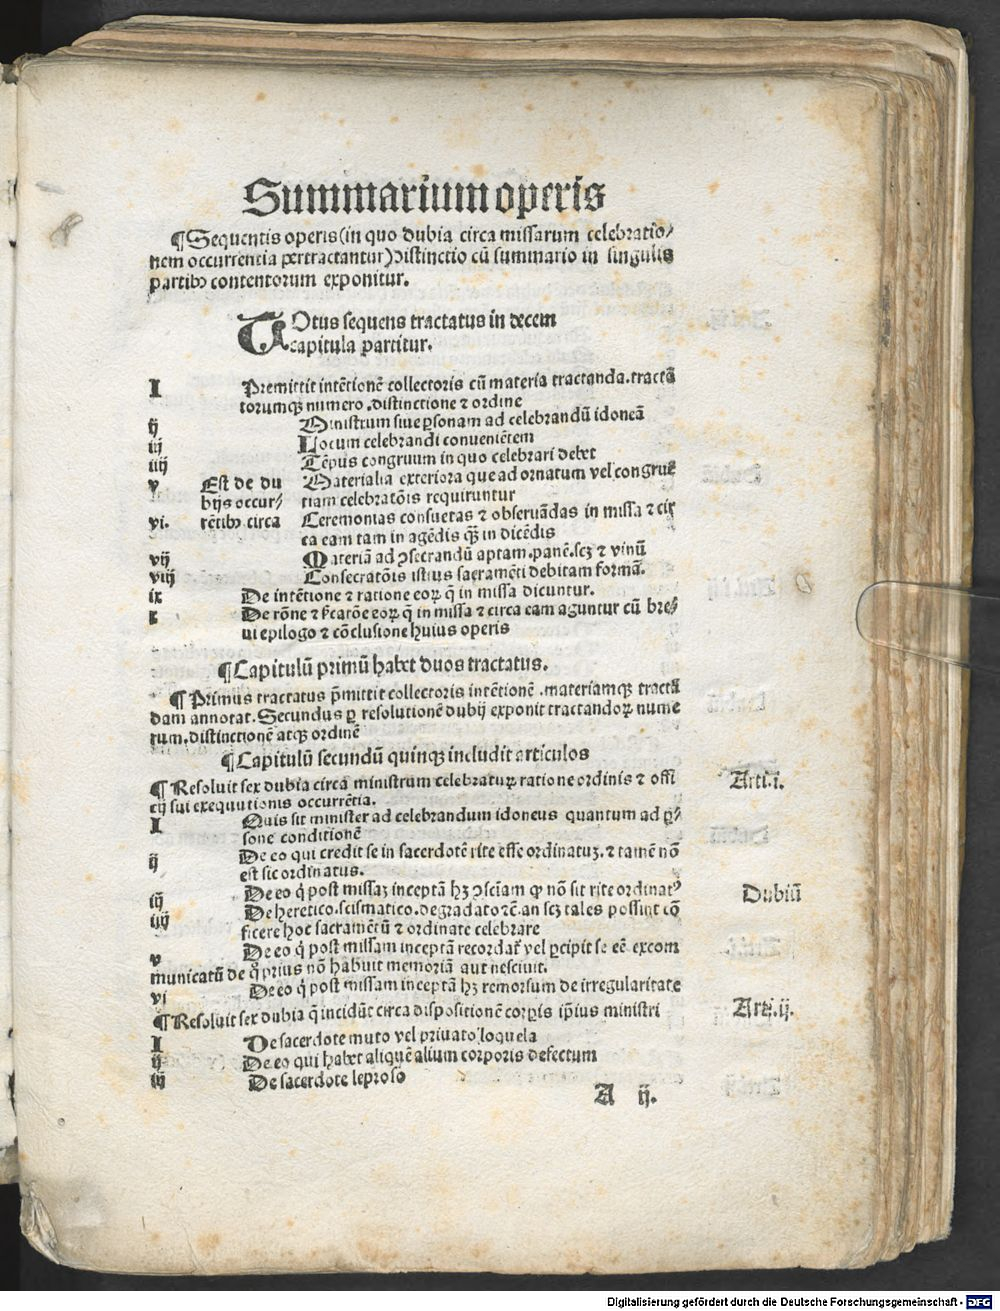 Summarium operis
¶ Sequentis operis (in quo dubia circa missarum celebratio/
nem occurrentia pertractantur) distinctio cū summario in singulis
partibꝫ contentorum exponitur.
TOtus sequens tractatus in decem
capitula partitur.
I Premittit intētionē collectoris cū materia tractanda. tractā
torumqꝫ numero. distinctione ⁊ ordine
ij Ministrum siue ꝑsonam ad celebrandū idoneā
iij Locum celebrandi conueniētem
iiij Tēpus congruum in quo celebrari debet
v Est de du Materialia exteriora que ad ornatum vel congruē
bijs occur/ tiam celebratōis requiruntur
vi. rētibꝫ circa Ceremonias consuetas ⁊ obseruādas in missa ⁊ cir
ca eam tam in agēdis qꝫ in dicēdis
vij Materiā ad ꝯsecrandū aptam. panē. scꝫ ⁊ vinū
viij Consecratōis istius sacramēti debitam formā.
ix De intētione ⁊ ratione eoꝝ q̄ in missa dicuntur.
x De rōne ⁊ eoꝝ q̄ in missa ⁊ circa eam aguntur cū bre/
ui epilogo ⁊ cōclusione huius operis
¶ Capitulū primū habet duos tractatus.
¶ Primus tractatus p̄mittit collectoris intētionē. materiamqꝫ tractā
dam annotat. Secundus ꝑ resolutionē dubij exponit tractandoꝝ nume
rum. distinctionē atqꝫ ordinē
¶ Capitulū secundū quinqꝫ includit articulos
¶ Resoluit sex dubia circa ministrum celebraturꝫ ratione ordinis ⁊ offi Arti. i.
cij sui exequutionis occurrētia.
I Quis sit minister ad celebrandum idoneus quantum ad ꝑ/
sone conditionē
ij De eo qui credit se in sacerdotē rite esse ordinatuꝫ. ⁊ tamē nō
est sic ordinatus.
iij De eo q̇ post missaꝫ inceptā hꝫ ꝯsciam ꝙ nō sit rite ordinatꝰ Dubiū
iiij De heretico. scismatico. degradato ⁊c̄. an scꝫ tales possint cō
ficere hoc sacramētū ⁊ ordinate celebrare
v De eo q̇ post missam inceptā recordat vel ꝑcipit se eē excom
municatū de quo prius nō habuit memoriā aut nesciuit.
vi De eo q̇ post missam inceptā hꝫ remorsum de irregularitate
¶ Resoluit sex dubia q̄ incidūt circa dispositionē corꝑis ip̄ius ministri Arti. ij.
I De sacerdote muto vel priuato loquela
ij De eo qui habet aliquē alium corporis defectum
iij De sacerdote leproso
A ij.
Digitalisierung gefördert durch die Deutsche Forschungsgemeinschaft - DFG